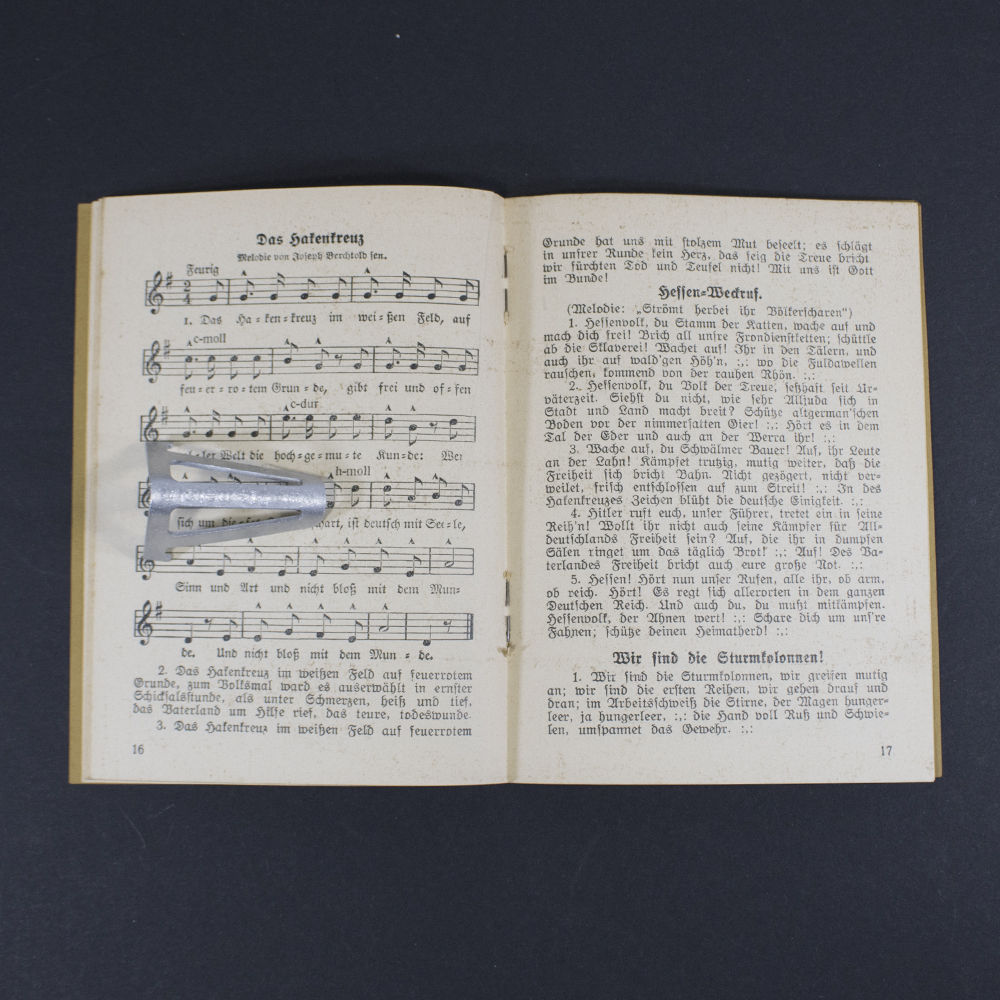 Das Hakenkreuz
Melodie von Joseph Berchtold sen.
Feurig
1. Das Ha=ken=kreuz im wei=ßen Feld, auf
c-moll
feu=er=ro=tem Grun=de, gibt frei und of=fen
c-dur
ler Welt die hoch=ge=mu=te Kun=de: Wer
h-moll
sich um die=se schart, ist deutsch mit See=le,
Sinn und Art und nicht bloß mit dem Mun=
de. Und nicht bloß mit dem Mun=de.
2. Das Hakenkreuz im weißen Feld auf feuerrotem
Grunde, zum Volksmal ward es auserwählt in ernster
Schicksalsstunde, als unter Schmerzen, heiß und tief,
das Vaterland um Hilfe rief, das teure, todeswunde.
3. Das Hakenkreuz im weißen Feld auf feuerrotem
16
Grunde hat uns mit stolzem Mut beseelt; es schlägt
in unsrer Runde kein Herz, das feig die Treue bricht
wir fürchten Tod und Teufel nicht! Mit uns ist Gott
im Bunde!
Hessen=Weckruf.
(Melodie: „Strömt herbei ihr Völkerscharen“)
1. Hessenvolk, du Stamm der Katten, wache auf und
mach dich frei! Brich all unsre Frondienstketten; schüttle
ab die Sklaverei! Wachet auf! Ihr in den Tälern, und
auch ihr auf wald'gen Höh'n, :,: wo die Fuldawellen
rauschen, kommend von der rauhen Rhön. :,:
2. Hessenvolk, du Volk der Treue, seßhaft seit Ur=
väterzeit. Siehst du nicht, wie sehr Alljuda sich in
Stadt und Land macht breit? Schütze altgerman'schen
Boden vor der nimmersatten Gier! :,: Hört es in dem
Tal der Eder und auch an der Werra ihr! :,:
3. Wache auf, du Schwälmer Bauer! Auf, ihr Leute
an der Lahn! Kämpfet trutzig, mutig weiter, daß die
Freiheit sich bricht Bahn. Nicht gezögert, nicht ver=
weilet, frisch entschlossen auf zum Streit! :,: In des
Hakenkreuzes Zeichen blüht die deutsche Einigkeit. :,:
4. Hitler ruft euch, unser Führer, tretet ein in seine
Reih'n! Wollt ihr nicht auch seine Kämpfer für All=
deutschlands Freiheit sein? Auf, die ihr in dumpfen
Sälen ringet um das täglich Brot! :,: Auf! Des Va=
terlandes Freiheit bricht auch eure große Not. :,:
5. Hessen! Hört nun unser Rufen, alle ihr, ob arm,
ob reich. Hört! Es regt sich allerorten in dem ganzen
Deutschen Reich. Und auch du, du mußt mitkämpfen.
Hessenvolk, der Ahnen wert! :,: Schare dich um uns're
Fahnen; schütze deinen Heimatherd! :,:
Wir sind die Sturmkolonnen!
1. Wir sind die Sturmkolonnen, wir greifen mutig
an; wir sind die ersten Reihen, wir gehen drauf und
dran; im Arbeitsschweiß die Stirne, der Magen hunger=
leer, ja hungerleer, :,: die Hand voll Ruß und Schwie=
len, umspannet das Gewehr. :,:
17